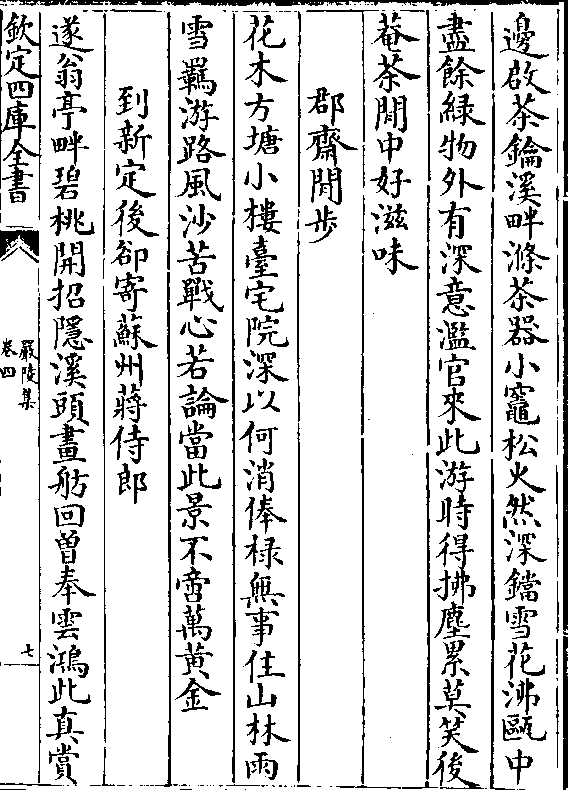 邊啟茶鑰溪畔滌茶器小竈松火然深鐺雪花沸甌中
盡餘緑物外有深意濫官來此游時得拂塵累莫笑後
菴茶閒中好滋味
郡齋閒步
花木方塘小樓臺宅院深以何消俸禄無事住山林雨
雪羈游路風沙苦戰心若論當此景不啻萬黄金
到新定後卻寄蘇州蔣侍郎
遂翁亭畔碧桃開招隠溪頭畫舫回曽奉雲鴻此真賞
欽定四庫全書
嚴陵集
卷四
七